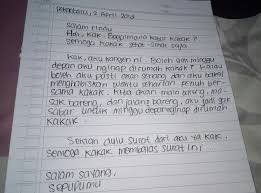 Pekanbaru, 2 April 2018
Salam rindu
Hai, kak. Bagaimana kabar kakak?
semoga kakak sehat-sehat saja
kak, aku kangen ni. Boleh gak minggu
depan aku nginap dirumah kakak? Kalau
boleh aku pasti akan senang dan aku bakal
menghabiskan waktu seharian penuh ber-
sama kakak. kita akan main bareng, ma-
sak bareng, dan jalan bareng, aku jadi gak
sabar untuk minggu depan nginap dirumah
kakak.
Sekian dulu surat dari aku ya kak.
semoga kakak membalas surat ini
salam sayang,
sepupumu